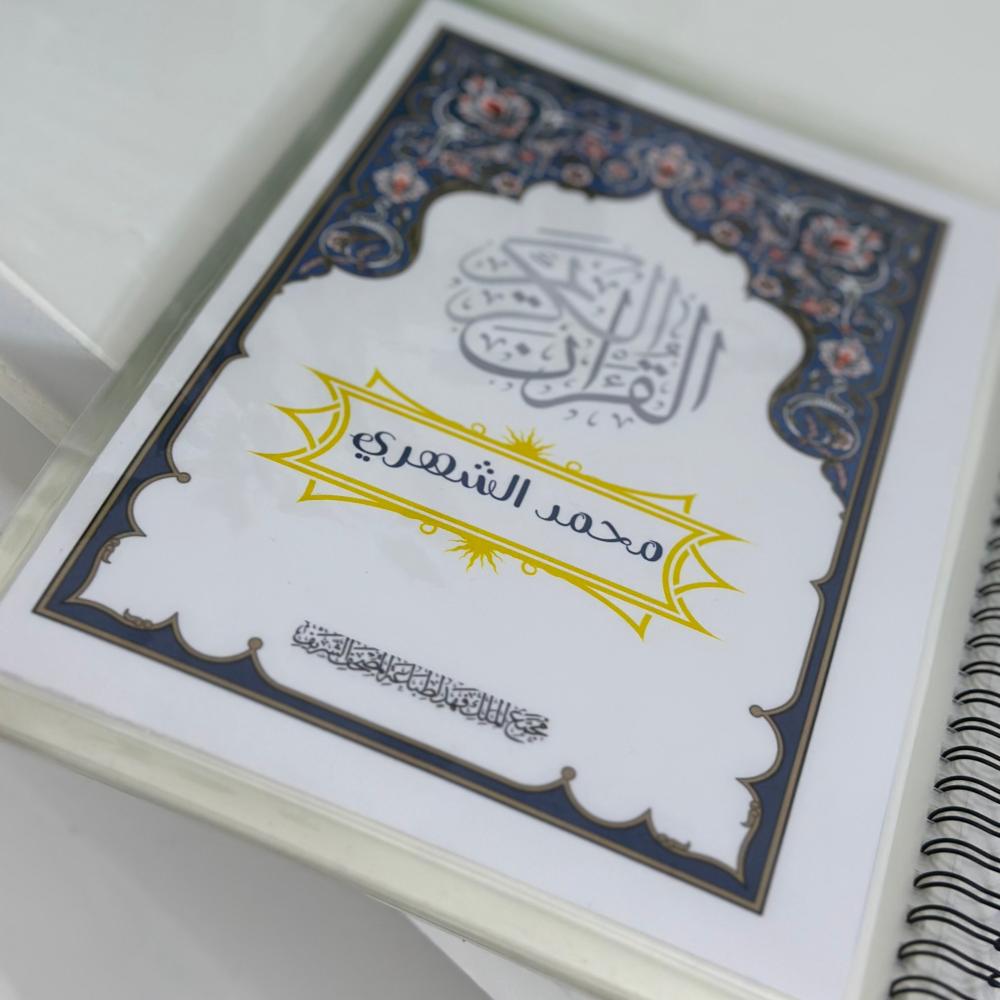 القرآن الكريم
محمد الشهري
مجمع الملك فهد لطباعة المصحف الشريف